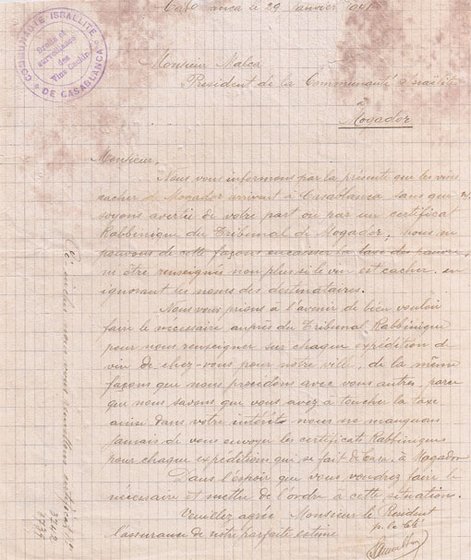 COMMUNAUTÉ ISRAÉLITE
DE CASABLANCA
Droits et
surveillance
des
Vins Cachir
Casablanca le 29 Janvier
Monsieur Malca
Président de la Communauté Israélite
à
Mogador
Monsieur,
Nous vous informons par la présente que les vins
cacher d Mogador arrivant à Casablanca sans que
soyons avertis de votre part ou par un certificat
Rabbinique du Tribunal de Mogador; nous ne
pouvons de cette façons encaisser la taxe du
ni être renseignés non plus si le vin est cacher en
ignorant les noms des destinataires.
Nous vous prions à l'avenir de bien vouloir
faire le nécessaire auprès du Tribunal Rabbinique
pour nous renseigner sur chaque expédition d
vin de chez-vous pour notre ville, de la même
façons que nous procédons avec vous autres, parce
que nous savons que vous avez à toucher la taxe
ainsi dans votre intérêt nous ne manquons
jamais de vous envoyer les certificats Rabbiniques
pour chaque expédition qui se fait de Casa à Mogador
Dans l'espoir que vous voudrez faire le
nécessaire et mettre de l'ordre à cette situation.
Veuillez agréer Monsieur le Président
l'assurance de notre parfaite estime